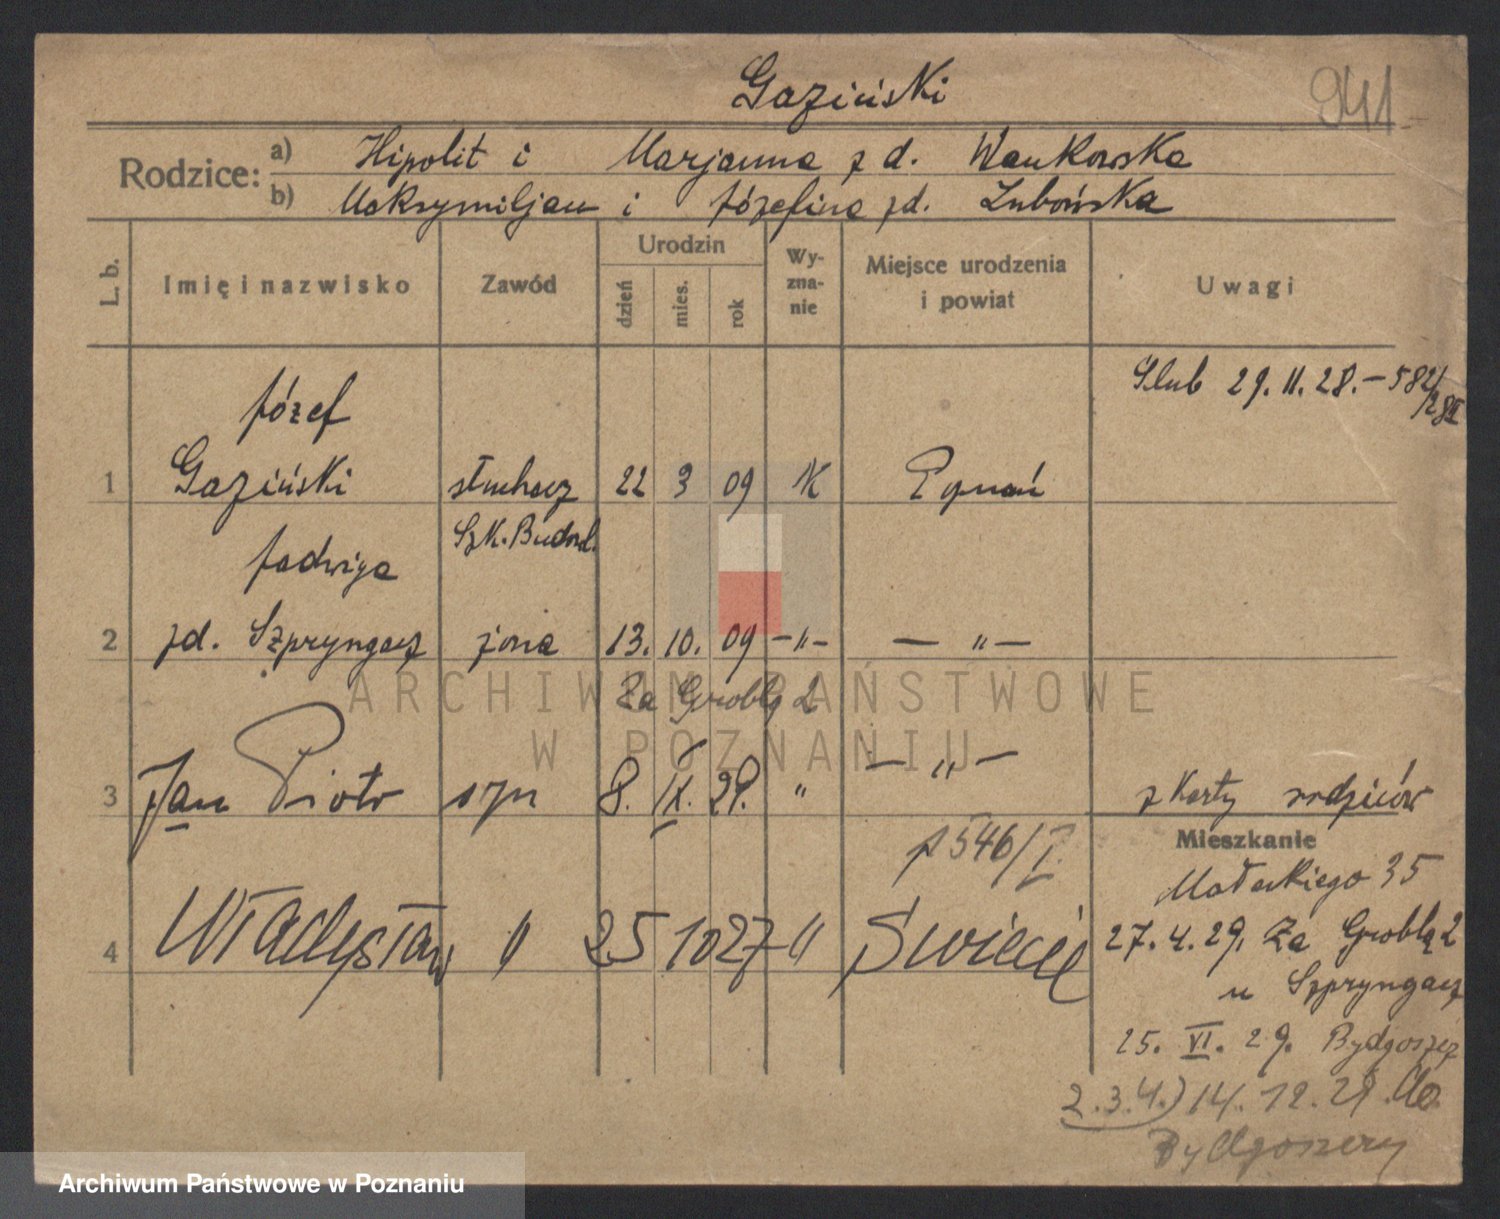 Gaziński
941
Rodzice: a) Hipolit i Marjanna z d. Wankowska
b) Maksymiljan i Józefina zd. Lubońska
L. b.
Imię i nazwisko
Zawód
Urodzin
dzień
mies.
rok
Wy-
zna-
nie
Miejsce urodzenia
i powiat
Uwagi
Ślub 29.11.28. – 582/
/28 II
Józef
1 Gaziński słuchacz 22 3 09 K Poznań
Szk. Budowl.
Jadwiga
2 zd. Szpryngacz żona 13. 10. 09 –"– – " –
Za Groblą 2
3 Jan Piotr syn 8. IX. 29. " – " – z Karty rodziców
p 546/I.
Mieszkanie
Małeckiego 35
4 Władysław " 25 10 27 –" Świecie
27. 4. 29. Za Groblą 2
u Szpryngacz
25. VI. 29. Bydgoszcz
2.3.4.) 14. 12. 29. do
Bydgoszczy
ARCHIWUM PAŃSTWOWE
W POZNANIU
Archiwum Państwowe w Poznaniu